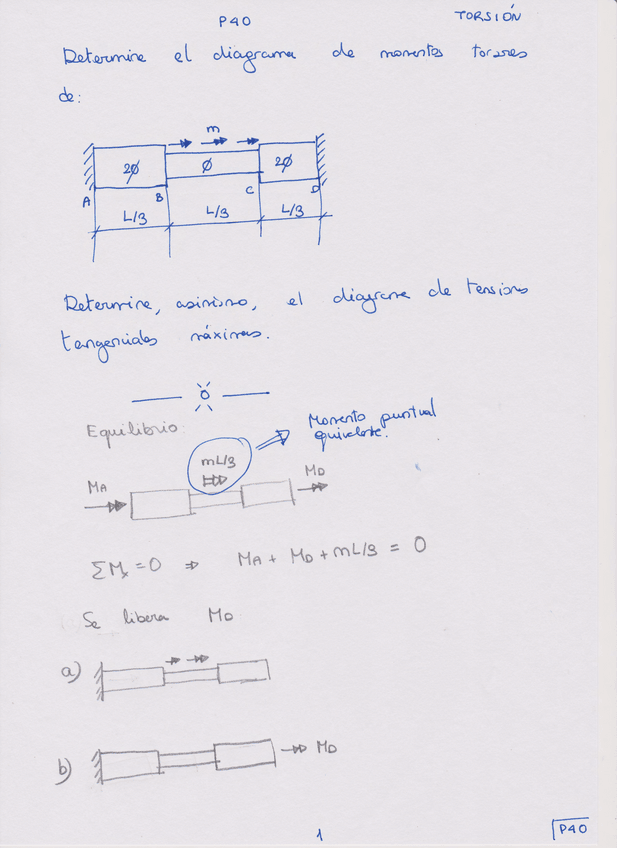 P40
TORSIÓN
Determine el diagrama de momentos torsores
de:
m
2Ø
Ø
2Ø
A
B
C
D
L/3
L/3
L/3
Determine, asimismo, el diagrama de tensiones
tangenciales máximas.
Equilibrio:
Momento puntual
equivalente.
mL/3
MA
MD
ΣMx=0 ⇒ MA + MD + mL/3 = 0
Se libera MD
a)
b)
MD
1
P40